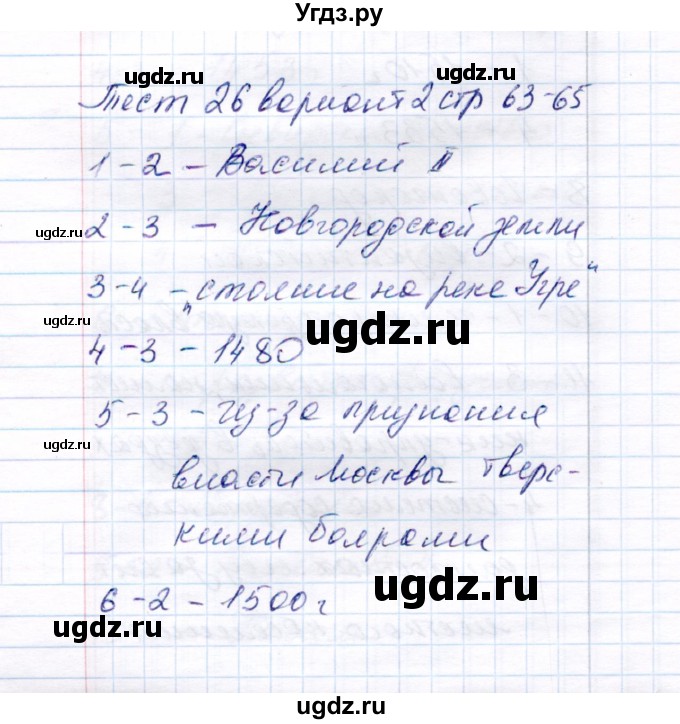 Угдз.ру
ugdz.ru ugdz.ru
Тест 26 вариант 2 стр 63-65
1-2 - Василий II
ugdz.ru
2-3 - Новгородской земли
3-4 - „стояние на реке Угре“
ugdz.ru
ugdz.ru
4-3 - 1480
5-3 - Из-за признания
ugdz.ru
власти Москвы Тверс-
кими боярами
ugdz.ru
6-2 - 1500 г
ugdz.ru
ugdz.ru
ugdz.ru